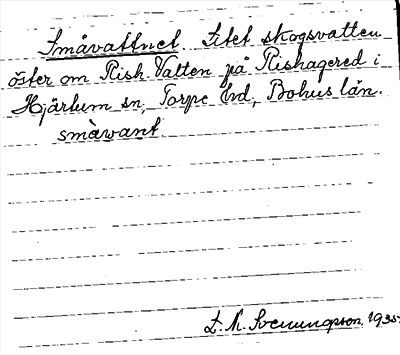 Småvattnet Litet skogsvatten
öster om Rish. Vatten på Rishagered i
Hjärtum sn, Torpe hd, Bohus län.
småwant
L. M. Svenungsson. 1935.